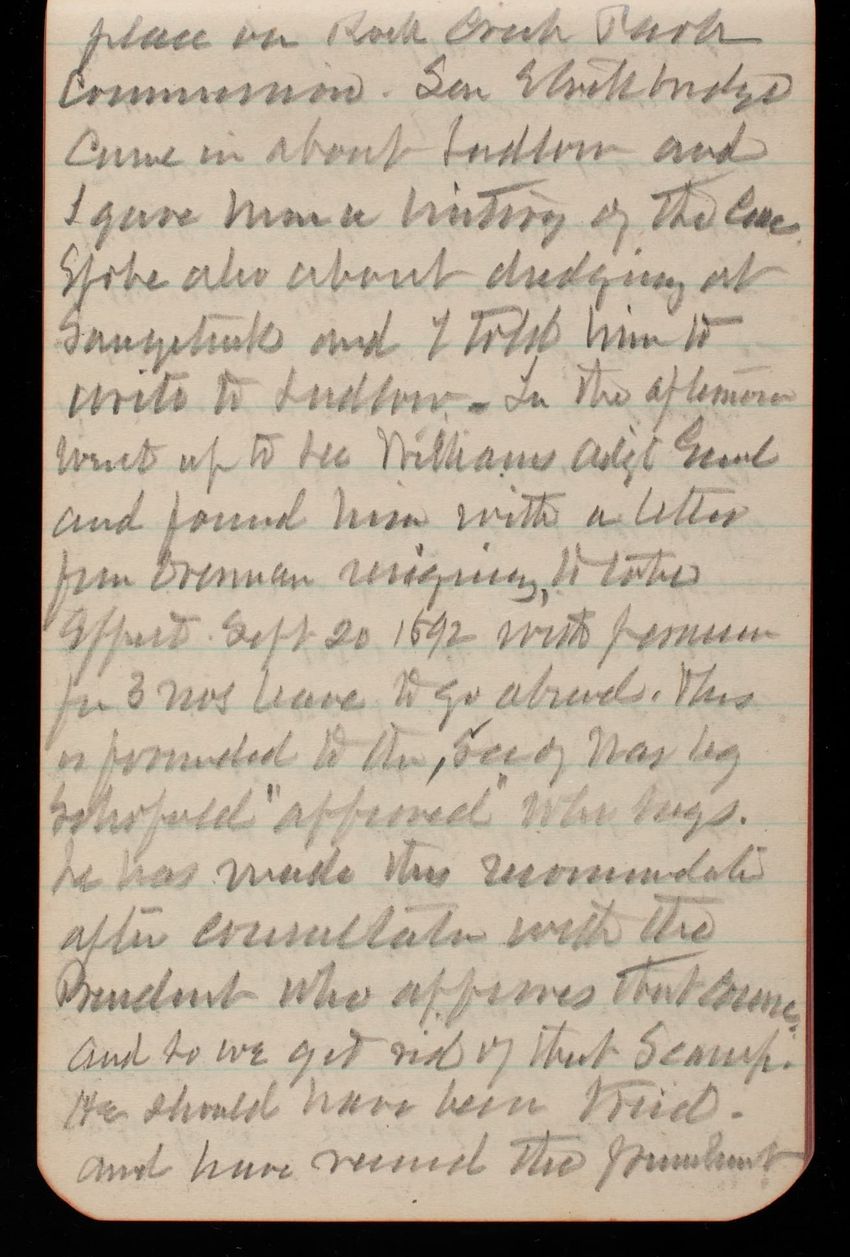 place on Rock Creek Park
Commission. Gen
Came in about Ludlow and
I gave him a history of the Case
also about dredging at
and I told him to
write to Ludlow - In the afternoon
went up to see Williams Adjt Genl
and found him with a letter
from resigning, to take
Effect Sept 20 1892 with
for 3 mos leave to go abroad. This
is forwarded to the, Secy of War by
Schofield "approved" who says.
he has made this recommendati
after consultatn with the
President who approves that course.
and so we get rid of that Scamp.
He should have been tried.
and have received the